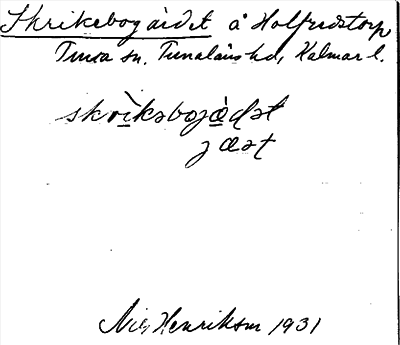 Skrikebogärdet å Holfredstorp
Tuna sn. Tunaläns hd, Kalmar l.
skrìkəbogæ̀ḍət
jæət
Nils Henrikson 1931